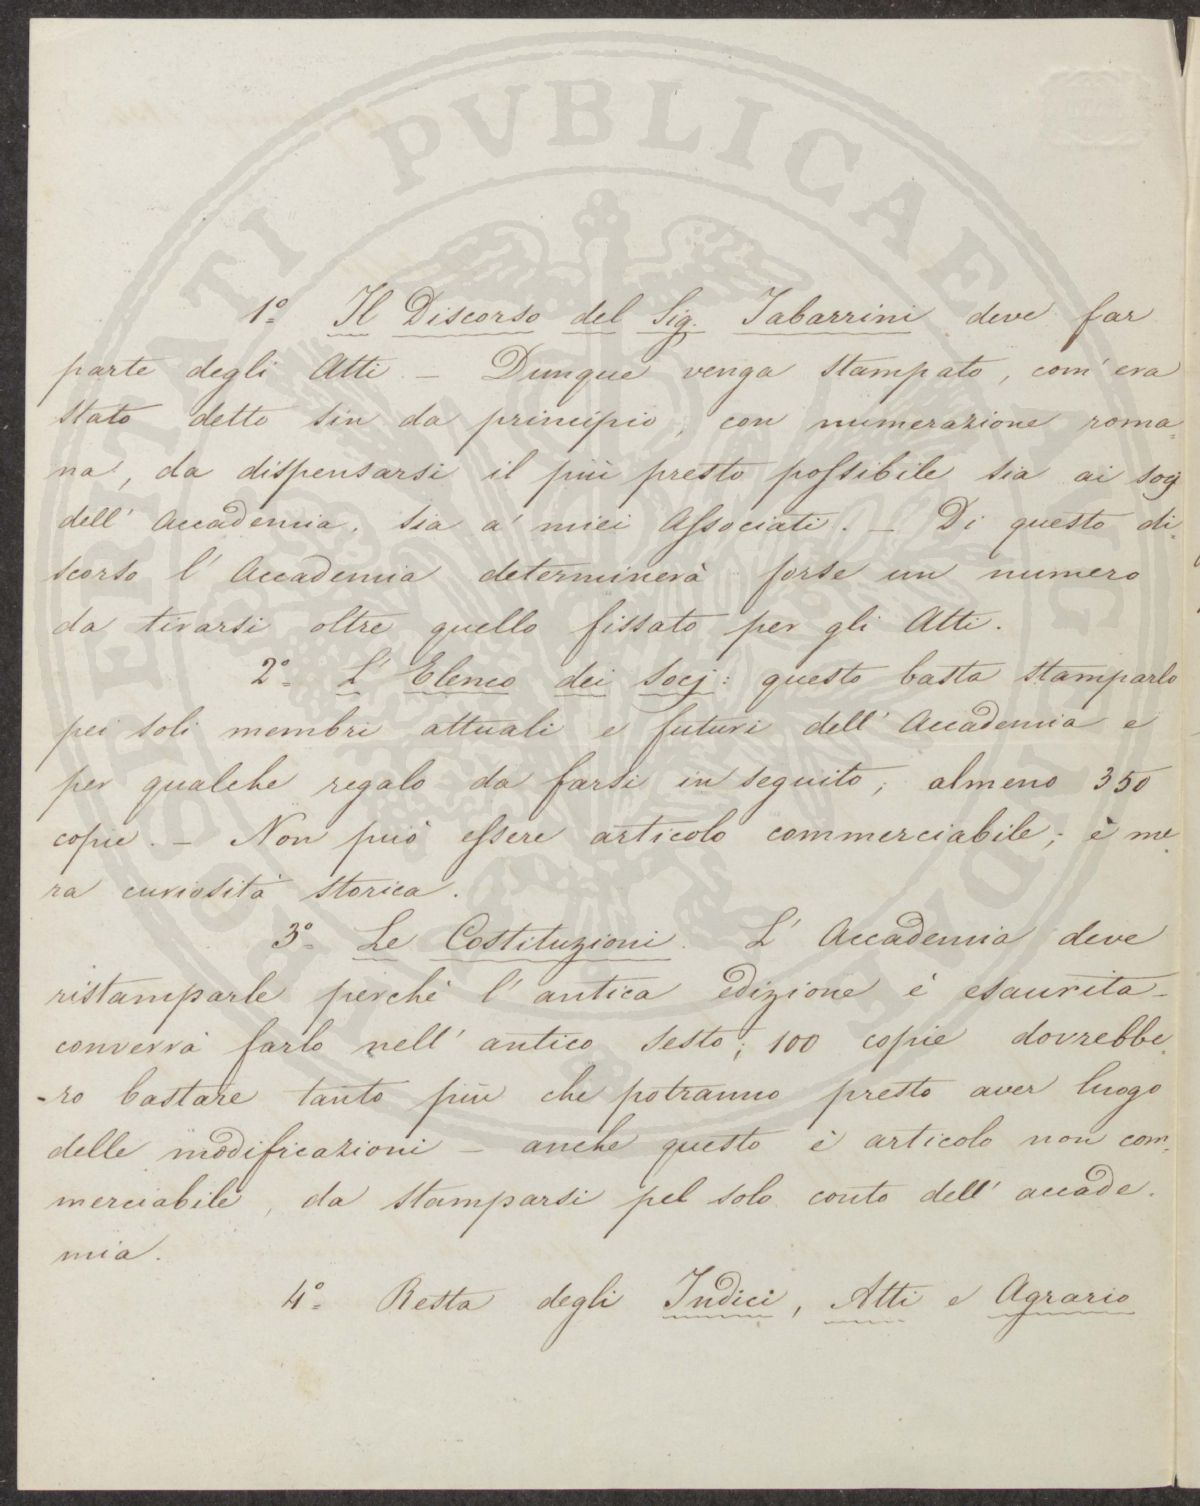 1.° Il Discorso del Sig. Tabarrini deve far
parte degli Atti — Dunque venga stampato, com'era
stato detto sin da principio, con numerazione roma-
na, da dispensarsi il più presto possibile sia ai socj
dell'Accademia, sia a' miei Associati. — Di questo di-
scorso l'Accademia determinerà forse un numero
da tirarsi oltre quello fissato per gli Atti.
2.° L'Elenco dei Socj: questo basta stamparlo
pei soli membri attuali e futuri dell'Accademia e
per qualche regalo da farsi in seguito; almeno 350
copie. — Non può essere articolo commerciabile; è me-
ra curiosità storica.
3.° Le Costituzioni. L'Accademia deve
ristamparle perchè l'antica edizione è esaurita —
converrà farlo nell'antico sesto; 100 copie dovrebbe-
-ro bastare tanto più che potranno presto aver luogo
delle modificazioni — anche questo è articolo non com-
merciabile, da stamparsi pel solo conto dell'accade-
mia.
4.° Resta degli Indici, Atti e Agrario
PVBLICAE